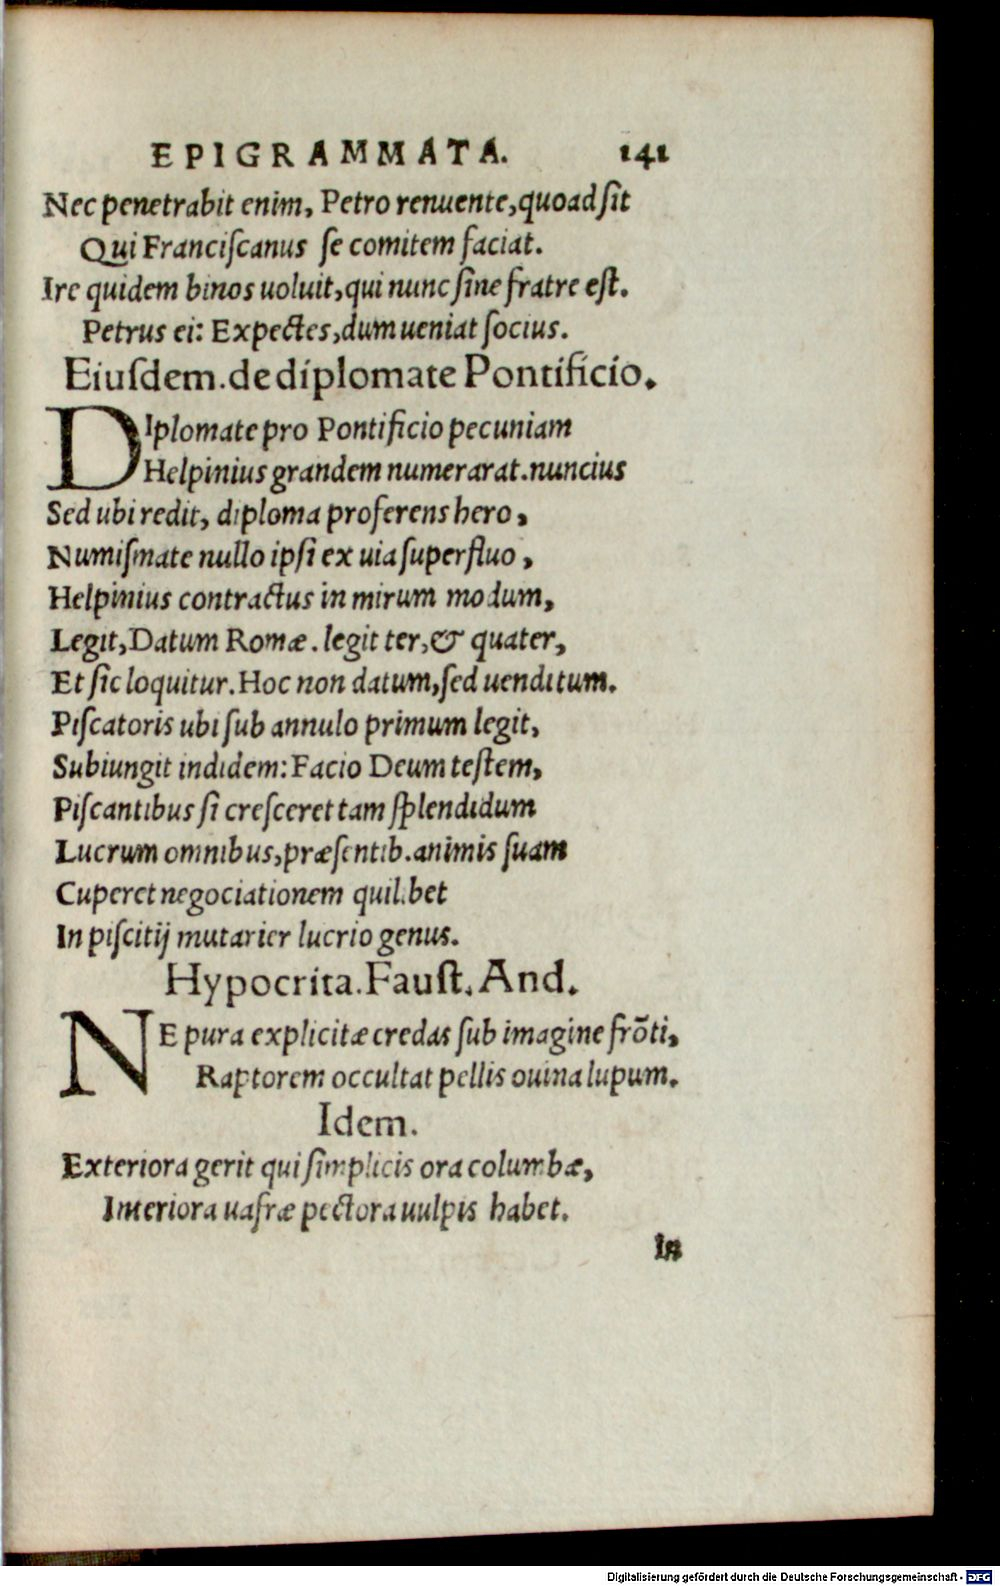 EPIGRAMMATA. 141
Nec penetrabit enim, Petro renuente, quoad ſit
Qui Franciſcanus ſe comitem faciat.
Ire quidem binos uoluit, qui nunc ſine fratre eſt.
Petrus ei: Expectes, dum ueniat ſocius.
Eiuſdem. de diplomate Pontificio.
DIplomate pro Pontificio pecuniam
Helpinius grandem numerarat. nuncius
Sed ubi redit, diploma proferens hero,
Numiſmate nullo ipſi ex uia ſuperfluo,
Helpinius contractus in mirum modum,
Legit, Datum Romæ. legit ter, & quater,
Et ſic loquitur. Hoc non datum, ſed uenditum.
Piſcatoris ubi ſub annulo primum legit,
Subiungit indidem: Facio Deum teſtem,
Piſcantibus ſi creſceret tam ſplendidum
Lucrum omnibus, præſentib. animis ſuam
Cuperet negociationem quilibet
In piſcitij mutarier lucrio genus.
Hypocrita. Fauſt. And.
NE pura explicitæ credas ſub imagine frõti,
Raptorem occultat pellis ouina lupum.
Idem.
Exteriora gerit qui ſimplicis ora columbæ,
Interiora uafræ pectora uulpis habet.
In
Digitalisierung gefördert durch die Deutsche Forschungsgemeinschaft - DFG